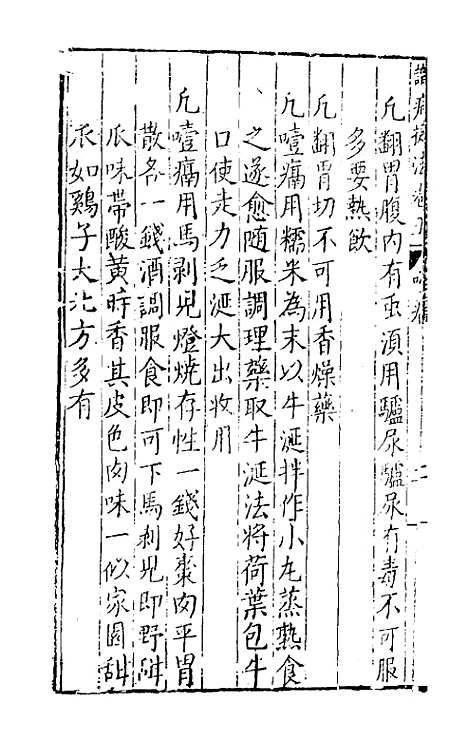 凢翻胃腹內有虫湏用驢尿驢尿有毒不可服
多要熱飲
凢翻胃切不可用香燥藥
凢噎痛用糯米為末以牛涎拌作小丸蒸熟食
之遂愈随服調理藥取牛涎法將荷葉包牛
口使走力乏涎大出收用
凢噎痛用馬剥兒燈燒存性一錢好棗肉平胃
散各一錢酒調服食即可下馬剥兒即野甜
瓜味帶酸黃時香其皮色肉味一似家園甜
瓜如鷄子大北方多有